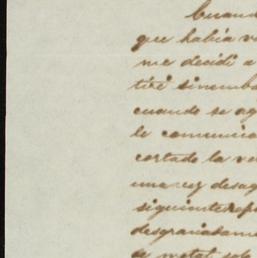 Cuando
que había v
me decidí a
tiré sinemba
cuando se ag
le comunica
cortado la ve
una vez desag
siguiente rep
desgraciadame
a matat sole